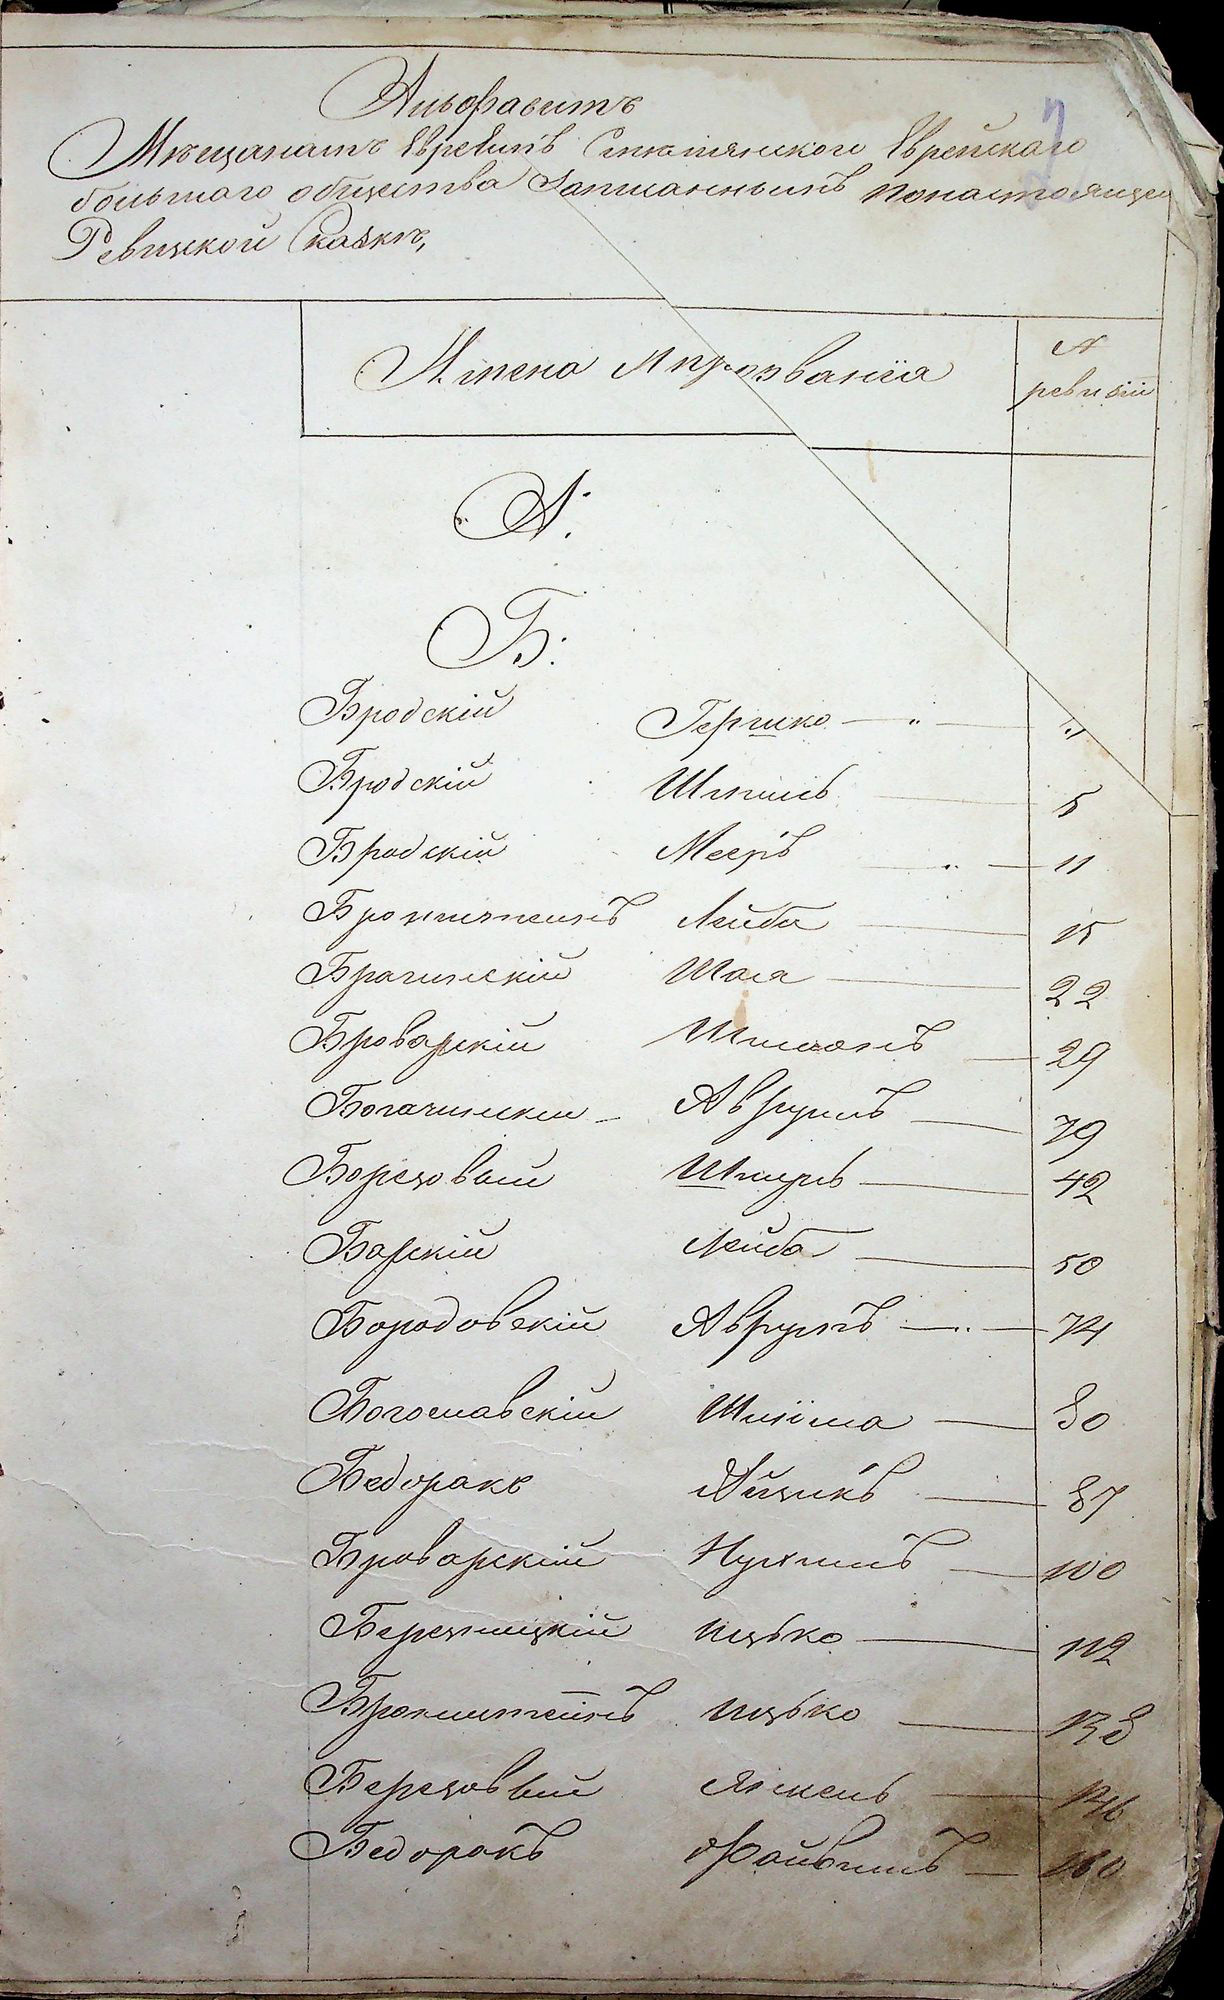 Алфавитъ
Мѣщанамъ Евреямъ Смѣлянского Еврейскаго
большаго общества Записаннымъ понастоящей
Ревизской Сказкѣ,
Имена и прозванія
№ ревизіи
А.
Б.
Бродскій Гершко "
Бродскій Шмиль 5
Бродскій Мееръ 11
Бронштейнъ Лейба 15
Брагинскій Шая 22
Броварскій Шимонъ 29
Богачинскій Аврумъ 39
Березовый Шмуль 42
Барскій Лейба 50
Бородовскій Аврумъ 74
Богославскій Шліома 80
Бедоракъ Айзикъ 87
Броварскій Нухимъ 100
Березницкій Ицько 112
Бронштейнъ Ицько
Березовый Янкель
Бедоракъ Файвишъ 160